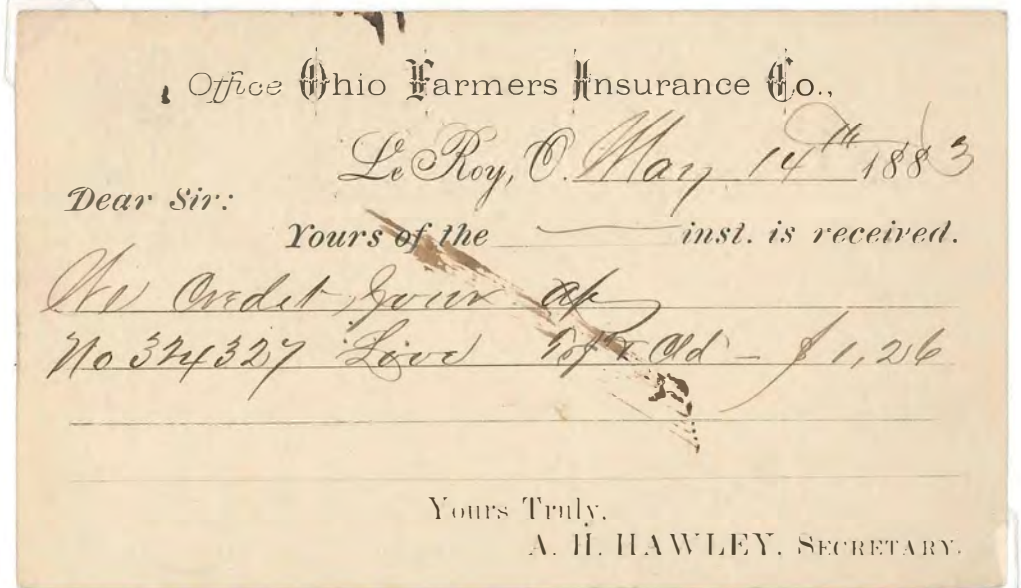 Office Ohio Farmers Insurance Co.,
Le Roy, O. May 14th 1883
Dear Sir:
Yours of the ——— inst. is received.
We Credit your
No 324327 - $1,26
Yours Truly,
A. H. HAWLEY, SECRETARY.